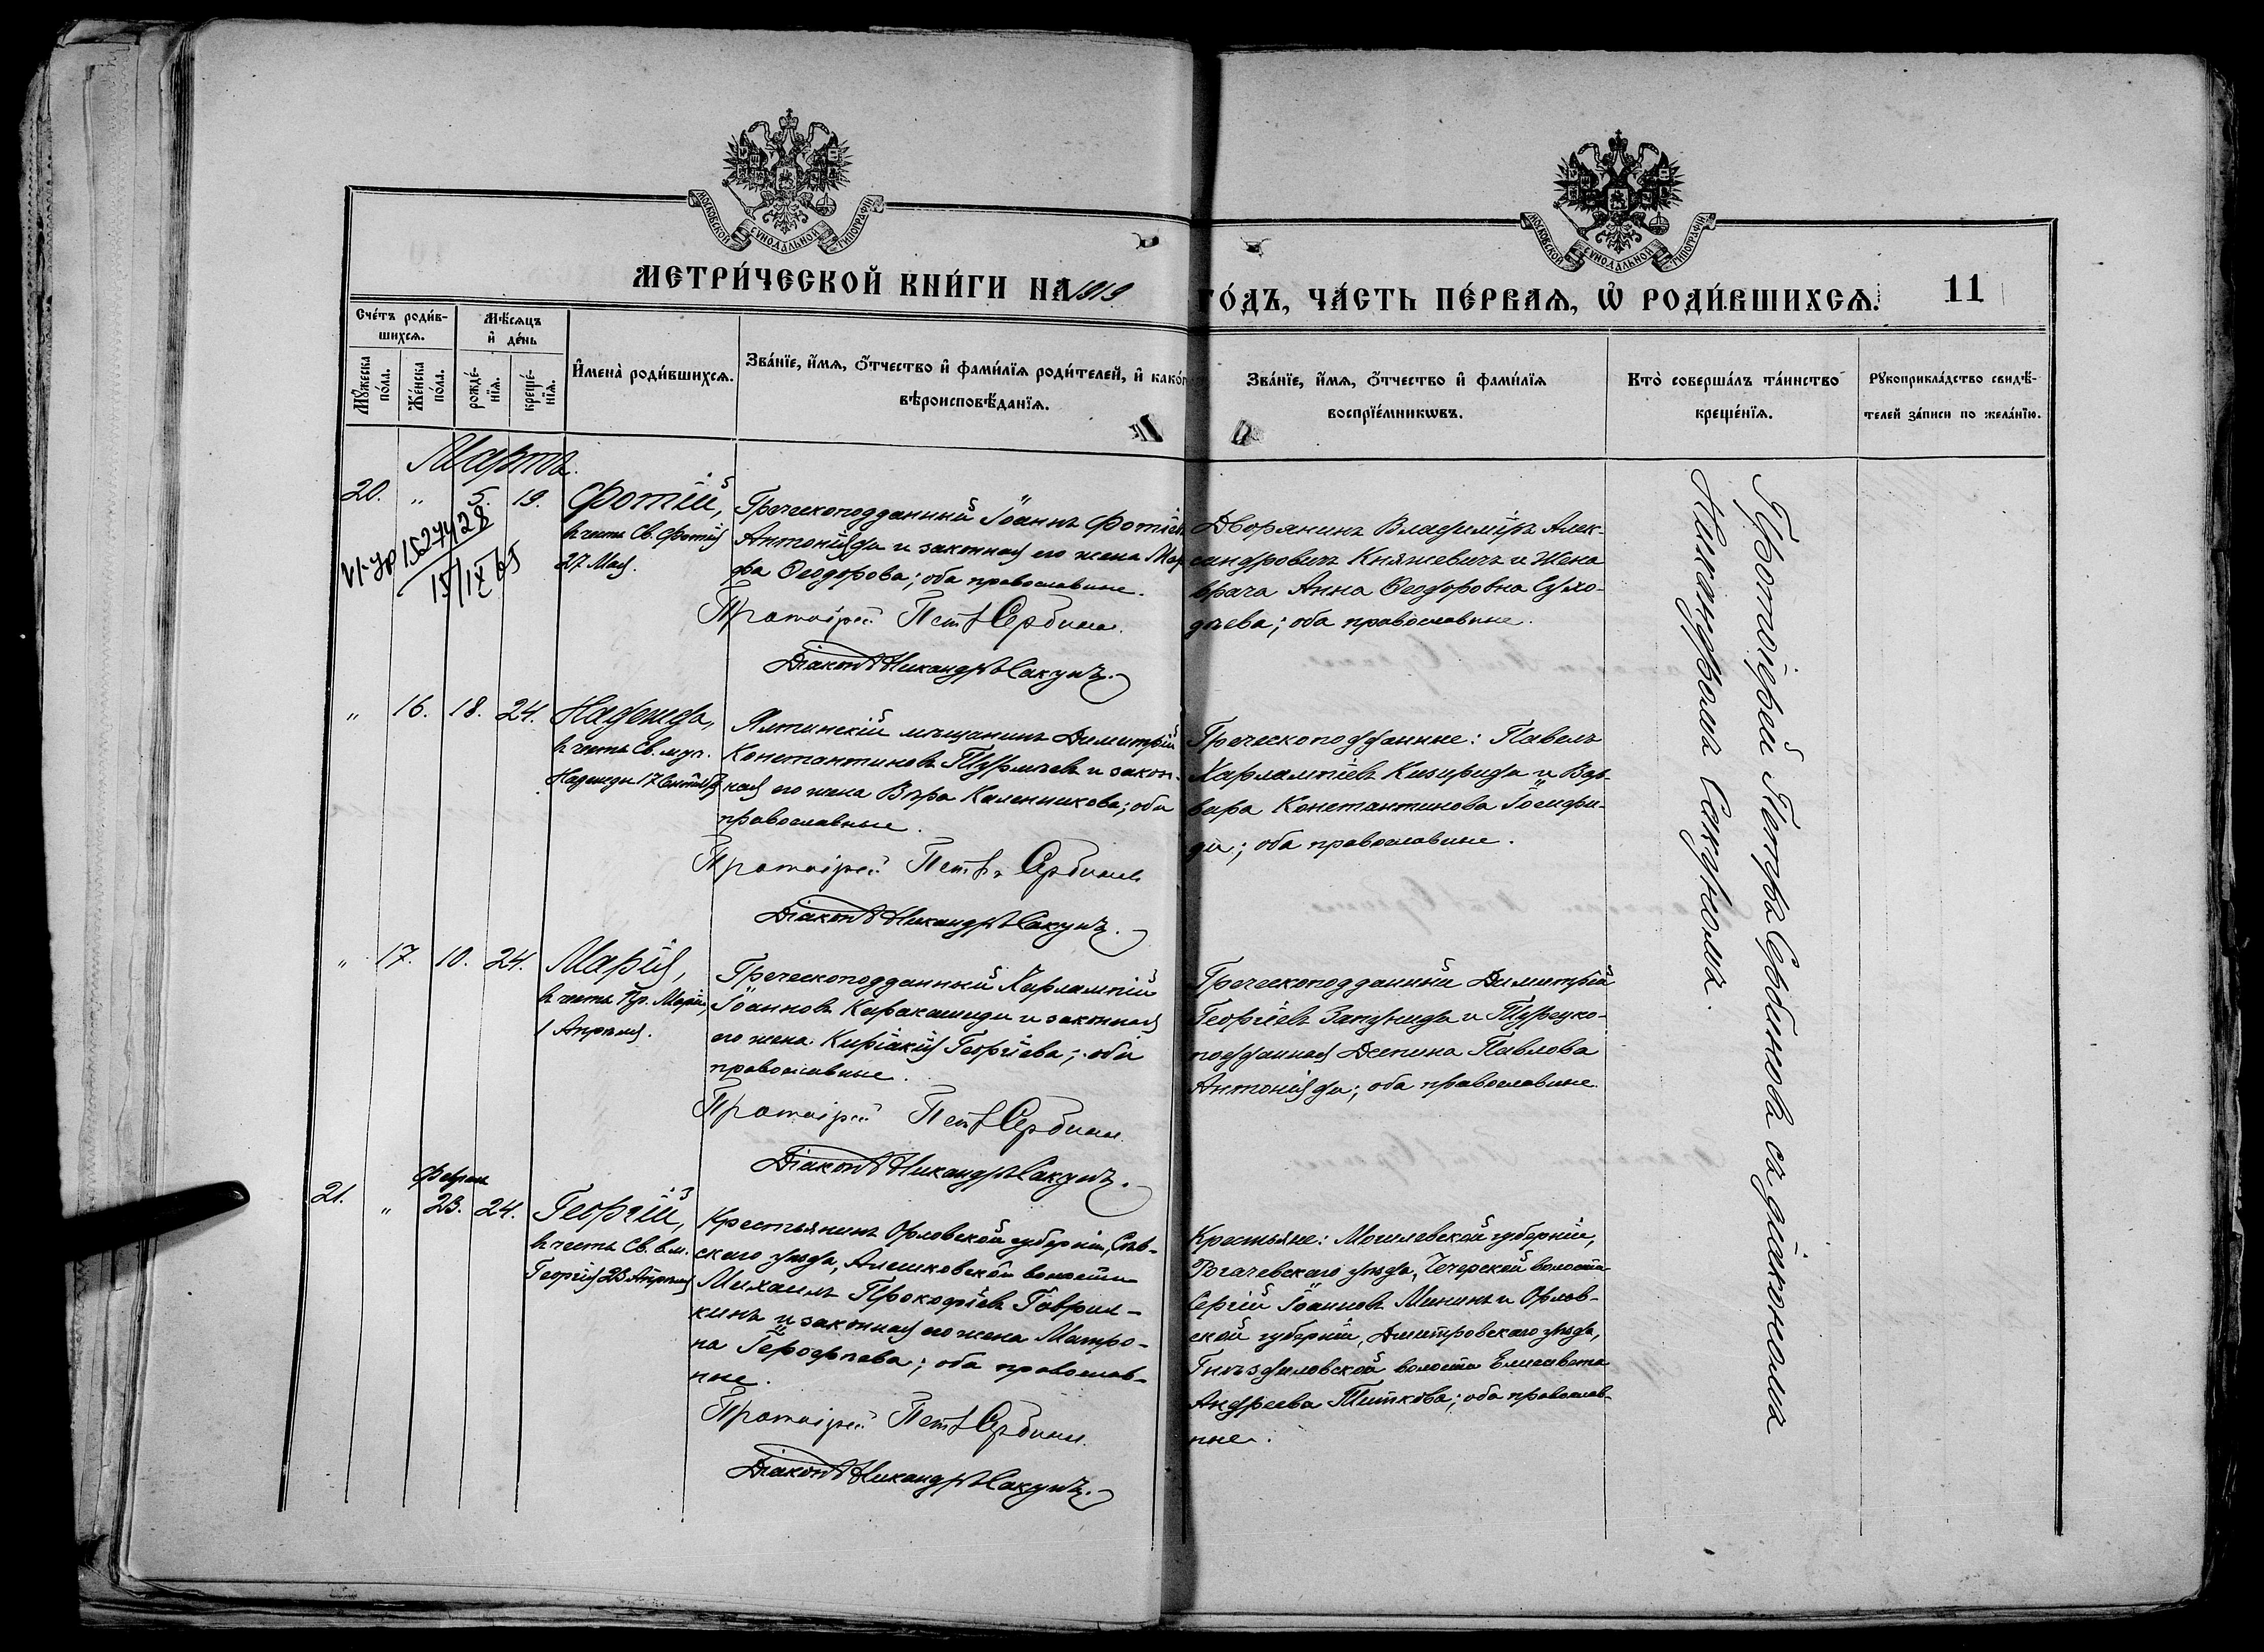 МОСКОВСКОЙ СѴНОДАЛЬНОЙ ТИПОГРАФІИ
МОСКОВСКОЙ СѴНОДАЛЬНОЙ ТИПОГРАФІИ
МЕТРИ́ЧЕСКОЙ КНИ́ГИ НА 1919
ГО́ДЪ, ЧА́СТЬ ПЕ́РВАѦ, Ѡ҆ РОДИ́ВШИХСѦ.
11
Сче́тъ роди́в-
шихсѧ.
Мꙋ́жеска по́ла.
Же́нска по́ла.
Мѣ́сѧцъ
и҆ де́нь
рожде́-
нїѧ.
креще́-
нїѧ.
И҆мена̀ роди́вшихсѧ.
Зва́нїе, и҆́мѧ, ѻ҆́тчество и҆ фами́лїѧ роди́телей, и҆ како́г
вѣроисповѣ́данїѧ.
Зва́нїе, и҆́мѧ, ѻ҆́тчество и҆ фами́лїѧ
воспрїе́мникѡвъ.
Кто̀ соверша́лъ та́инство
креще́нїѧ.
Рꙋкоприкла́дство свидѣ́-
телей за́писи по жела́нїю.
Мартъ.
20. " 5. 19.
1527428
15/IX 65
Фотій,
въ честь Св. Фотія
27 Мая.
Греческоподданный Іоаннъ Фотіевъ
Антоніяди и законная его жена Мар
фа Ѳеодорова; оба православные.
Протоіерей Петръ Сербиновъ
Діаконъ Никандръ Сакунъ.
Дворянинъ Владиміръ Алек-
сандровичъ Княжевичъ и жена
врача Анна Ѳеодоровна Сухо-
дѣева; оба православные.
" 16. 18. 24.
Надежда,
въ честь Св. муч.
Надежды 17 Сентября
Ялтинскій мѣщанинъ Димитрій
Константиновъ Турмѣевъ и закон-
ная его жена Вѣра Каленникова; оба
православные.
Протоіерей Петръ Сербиновъ
Діаконъ Никандръ Сакунъ.
Греческоподданные: Павелъ
Харлампіевъ Кизириди и Вар-
вара Константинова Іосифи-
ди; оба православные.
" 17. 10. 24.
Марія,
въ честь Пр. Маріи,
1 Апрѣля.
Греческоподданный Харлампій
Іоанновъ Каракашиди и законная
его жена Киріакія Георгіева; оба
православные.
Протоіерей Петръ Сербиновъ
Діаконъ Никандръ Сакунъ.
Греческоподданный Димитрій
Георгіевъ и Турецко-
подданная Деспина Павлова
Антоніяди; оба православные.
Феврал
21. " 23. 24.
Георгій,
въ честь Св. в.м.
Георгія 23 Апрѣля
Крестьянинъ Орловской губерніи, Сѣв-
скаго уѣзда, Алешковской волости
Михаилъ Прокофіевъ Гаврил-
кинъ и законная его жена Матро-
на Іерофѣева; оба православ-
ные.
Протоіерей Петръ Сербиновъ
Діаконъ Никандръ Сакунъ.
Крестьяне: Могилевской губерніи,
Рогачевскаго уѣзда, Чечерской волости
Сергій Іоанновъ Мининъ и Орлов-
ской губерніи, Дмитровскаго уѣзда,
Гнѣздиловской волости Елисавета
Андреева Титкова; оба православ-
ные.
Протоіерей Петръ Сербиновъ съ діакономъ
Никандромъ Сакуномъ.